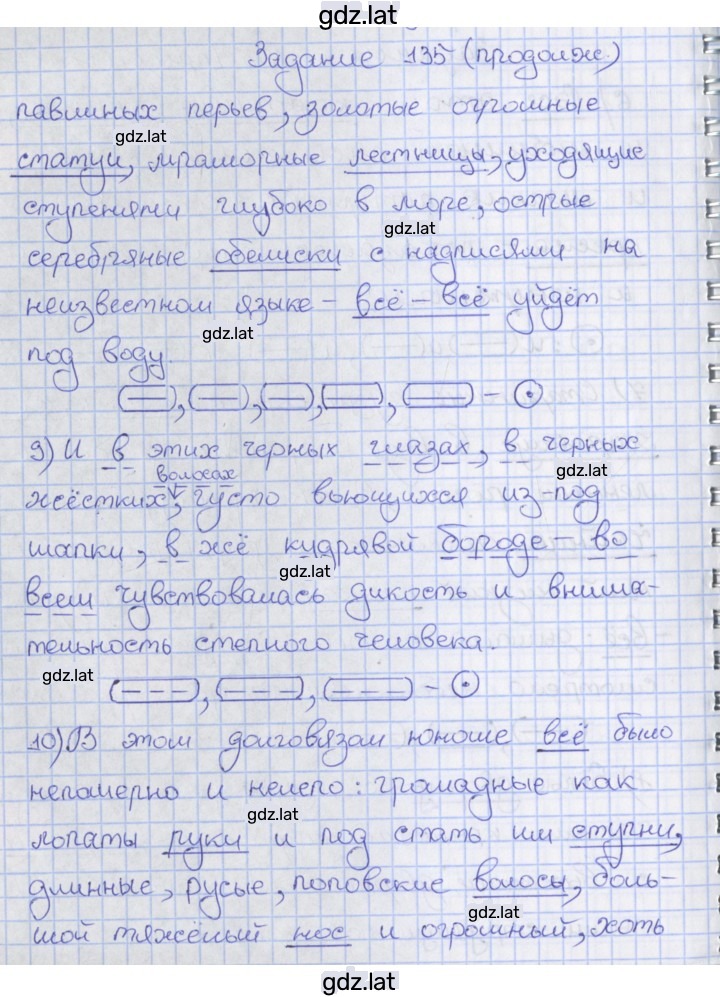 gdz.lat
Задание 135 (продолж.)
павлиных перьев, золотые огромные
gdz.lat
статуи, мраморные лестницы, уходящие
gdz.lat
ступенями глубоко в море, острые
gdz.lat
серебряные обелиски с надписями на
неизвестном языке – всё – всё уйдёт
gdz.lat
под воду.
9) И в этих черных глазах, в черных
волосах
gdz.lat
жёстких, густо вьющихся из-под
шапки, в жё кудрявой бороде – во
gdz.lat
всем чувствовалась дикость и внима-
тельность степного человека.
gdz.lat
10) В этом долговязом юноше всё было
непомерно и нелепо: громадные как
gdz.lat
лопаты руки и под стать им ступни,
длинные, русые, поповские волосы, боль-
gdz.lat
шой тяжёлый нос и огромный, хоть
gdz.lat